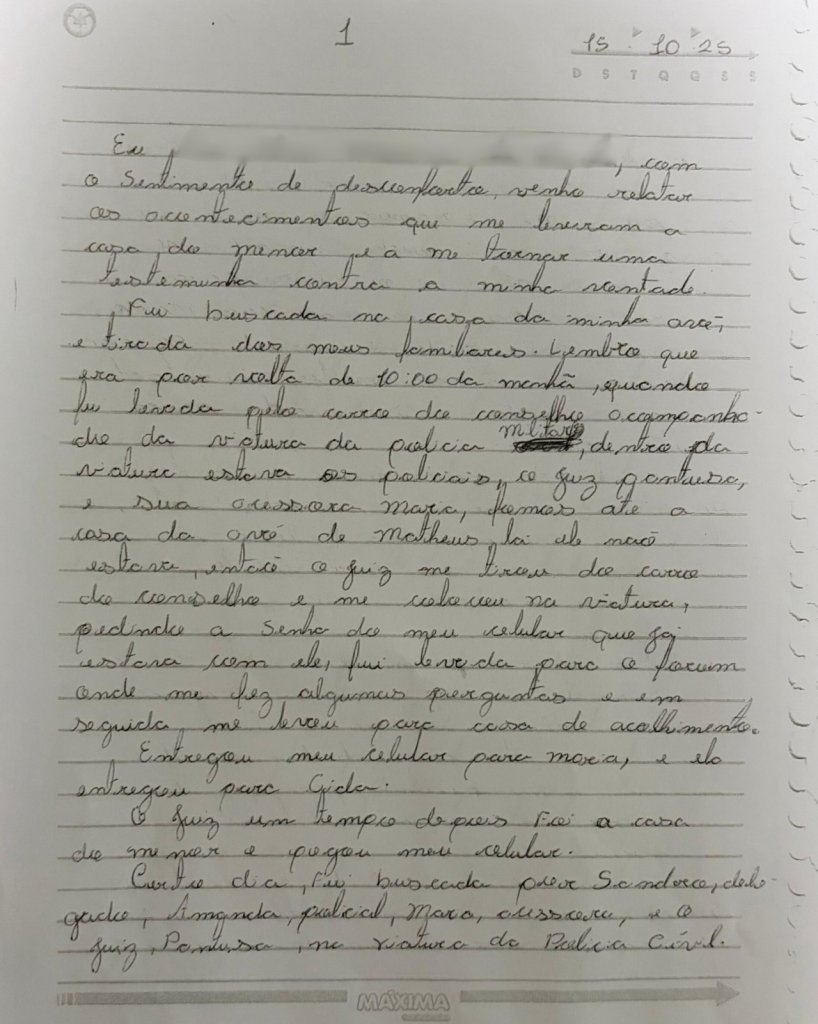 1
15 10 25
D S T Q Q S S
Eu , com
o sentimento de desconforto, venho relatar
os acontecimentos que me levaram a
casa do menor, e a me tornar uma
testemunha contra a minha vontade.
Fui buscada na casa da minha avó,
e tirada dos meus familiares. Lembro que
era por volta de 10:00 da manhã, quando
fui levada pelo carro do conselho acompanha-
do da viatura da policia Militar, dentro da
viatura estava os policiais, o juiz pontusa,
e sua acessora Mara, fomos até a
casa da avó de Matheus, lá ele não
estava, então o juiz me tirou do carro
do conselho e me colocou na viatura,
pedindo a senha do meu celular que já
estava com ele, fui levada para o forum
onde me fez algumas perguntas e em
seguida, me levou para casa de acolhimento.
Entregou meu celular para mara, e ela
entregou para Gida.
O juiz um tempo depois Foi a casa
do menor e pegou meu celular.
Certo dia, Fui buscada por Sandero, dele-
gado, Amanda, policial, Mara, acessora, e o
juiz, Pontusa, na viatura da Policia Cívil.
MÁXIMA